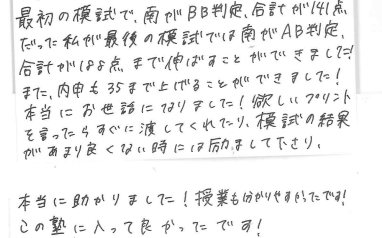 最初の模試で、南がBB判定、合計が141点
だった私が最後の模試では南がAB判定、
合計が188点まで伸ばすことができました!
また、内申も35まで上げることができました!
本当にお世話になりました!欲しいプリント
を言ったらすぐに渡してくれたり、模試の結果
があまり良くない時には励まして下さり、
本当に助かりました!授業も分かりやすかったです!
この塾に入って良かったです!